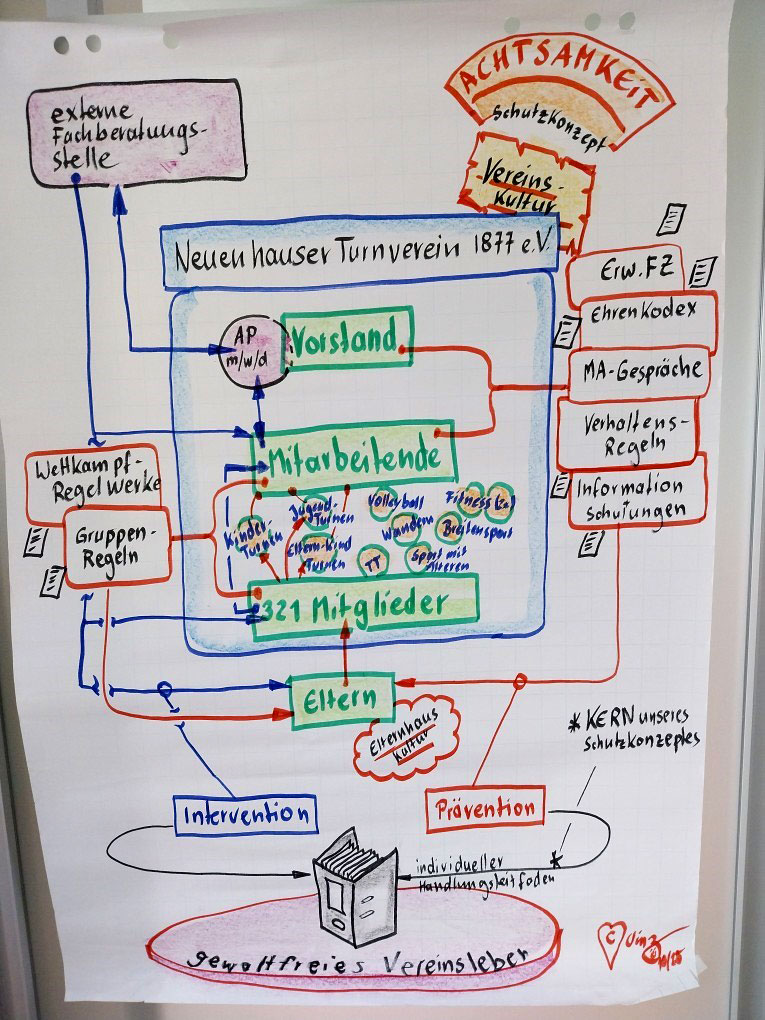 ACHTSAMKEIT
Schutzkonzept
Vereins-
Kultur
externe
Fachberatungs-
stelle
Neuenhauser Turnverein 1877 e.V.
AP
m/w/d
Vorstand
Mitarbeitende
Erw. FZ
Ehrenkodex
MA-Gespräche
Verhaltens-
Regeln
Information
Schulungen
Wettkampf-
Regelwerke
Gruppen-
Regeln
Kinder-
Turnen
Jugend-
Turnen
Eltern-Kind
Turnen
Volleyball
Wandern
TT
Fitness (2x)
Breitensport
Sport mit
Älteren
321 Mitglieder
Eltern
Elternhaus
Kultur
* KERN unseres
Schutzkonzeptes
Intervention
Prävention
individueller *
Handlungsleitfaden
gewaltfreies Vereinsleben
C
10/25